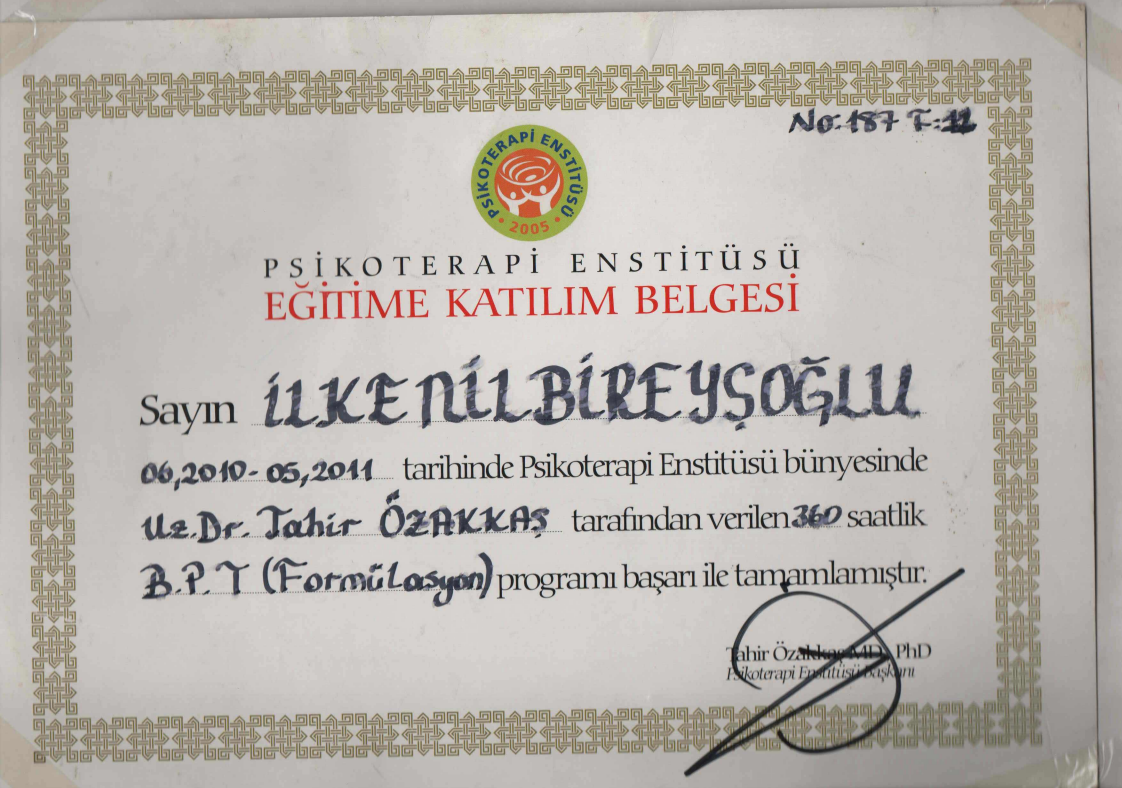 No: 187 T: 11
PSİKOTERAPİ ENSTİTÜSÜ
2005
PSİKOTERAPİ ENSTİTÜSÜ
EĞİTİME KATILIM BELGESİ
Sayın İLKE NİL BİREYŞOĞLU
06,2010 - 05,2011 tarihinde Psikoterapi Enstitüsü bünyesinde
Uz.Dr. Tahir ÖZAKKAŞ tarafından verilen 360 saatlik
B.P.T (Formülasyon) programı başarı ile tamamlamıştır.
Tahir Özakkaş MD. PhD
Psikoterapi Enstitüsü Başkanı